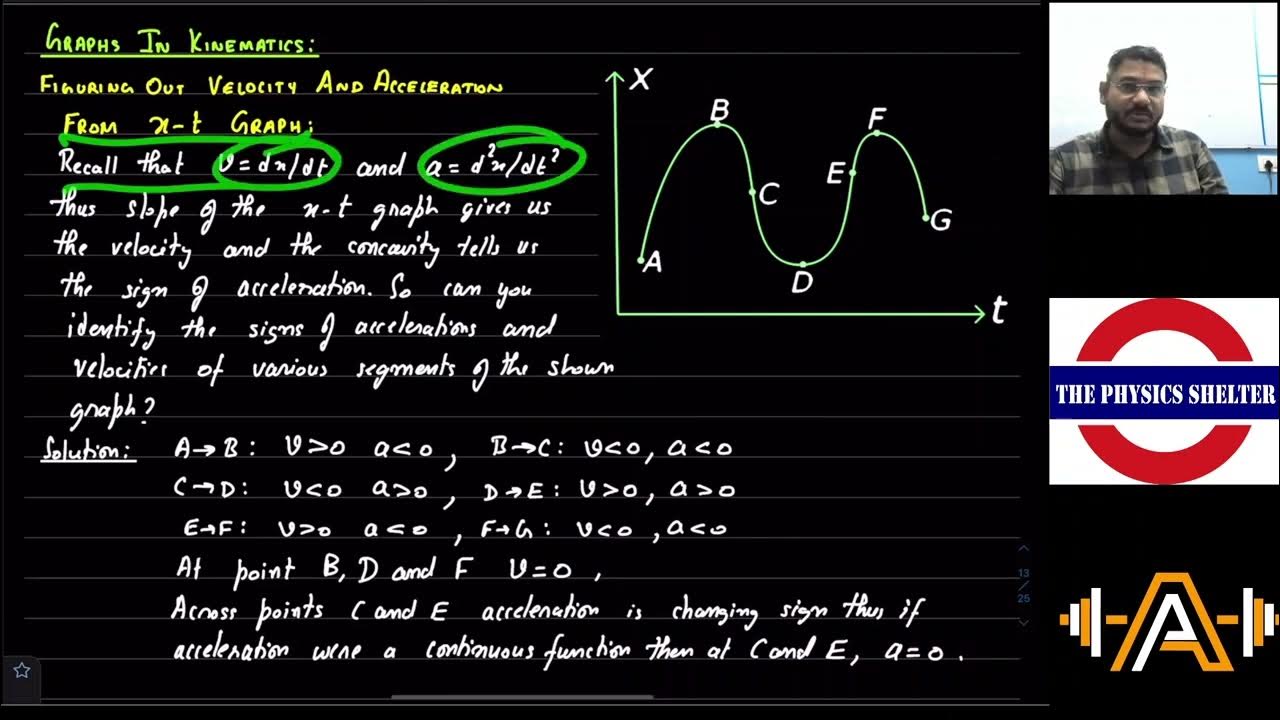 GRAPHS IN KINEMATICS:
FIGURING OUT VELOCITY AND ACCELERATION
FROM x-t GRAPH:
Recall that v = dx/dt and a = d²x/dt²
thus slope of the x-t graph gives us
the velocity and the concavity tells us
the sign of acceleration. So can you
identify the signs of accelerations and
velocities of various segments of the shown
graph?
Solution: A→B: v>0 a<0, B→C: v<0, a<0
C→D: v<0 a>0, D→E: v>0, a>0
E→F: v>0 a<0, F→G: v<0, a<0
At point B, D and F v=0,
Across points C and E acceleration is changing sign thus if
acceleration were a continuous function then at C and E, a=0.
X
B
F
E
C
G
A
D
t
13
/
25
THE PHYSICS SHELTER
A